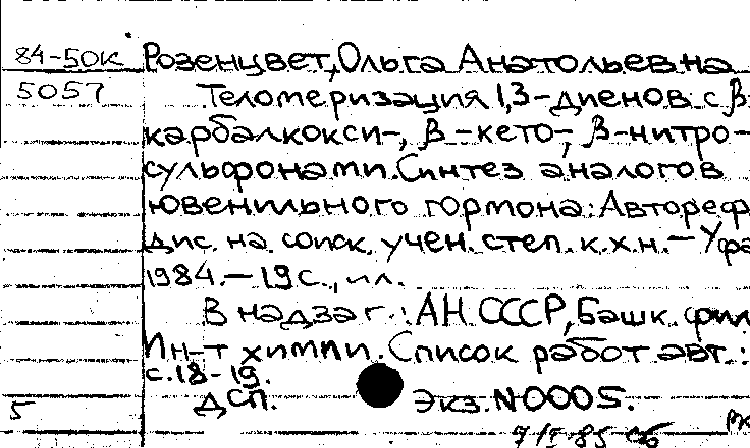 84-50к Розенцвет, Ольга Анатольевна
5057 Теломеризация 1,3-диенов с β-
карбалкокси-, β-кето-, β-нитро-
сульфонами. Синтез аналогов
ювенильного гормона: Автореф
дис. на соиск. учен. степ. к.х.н. – Уфа
1984. – 19 с., ил.
В надзаг.: АН СССР, Башк. фил
Ин-т химии. Список работ авт.:
с. 18-19.
5 ДСП. Экз. N0005.